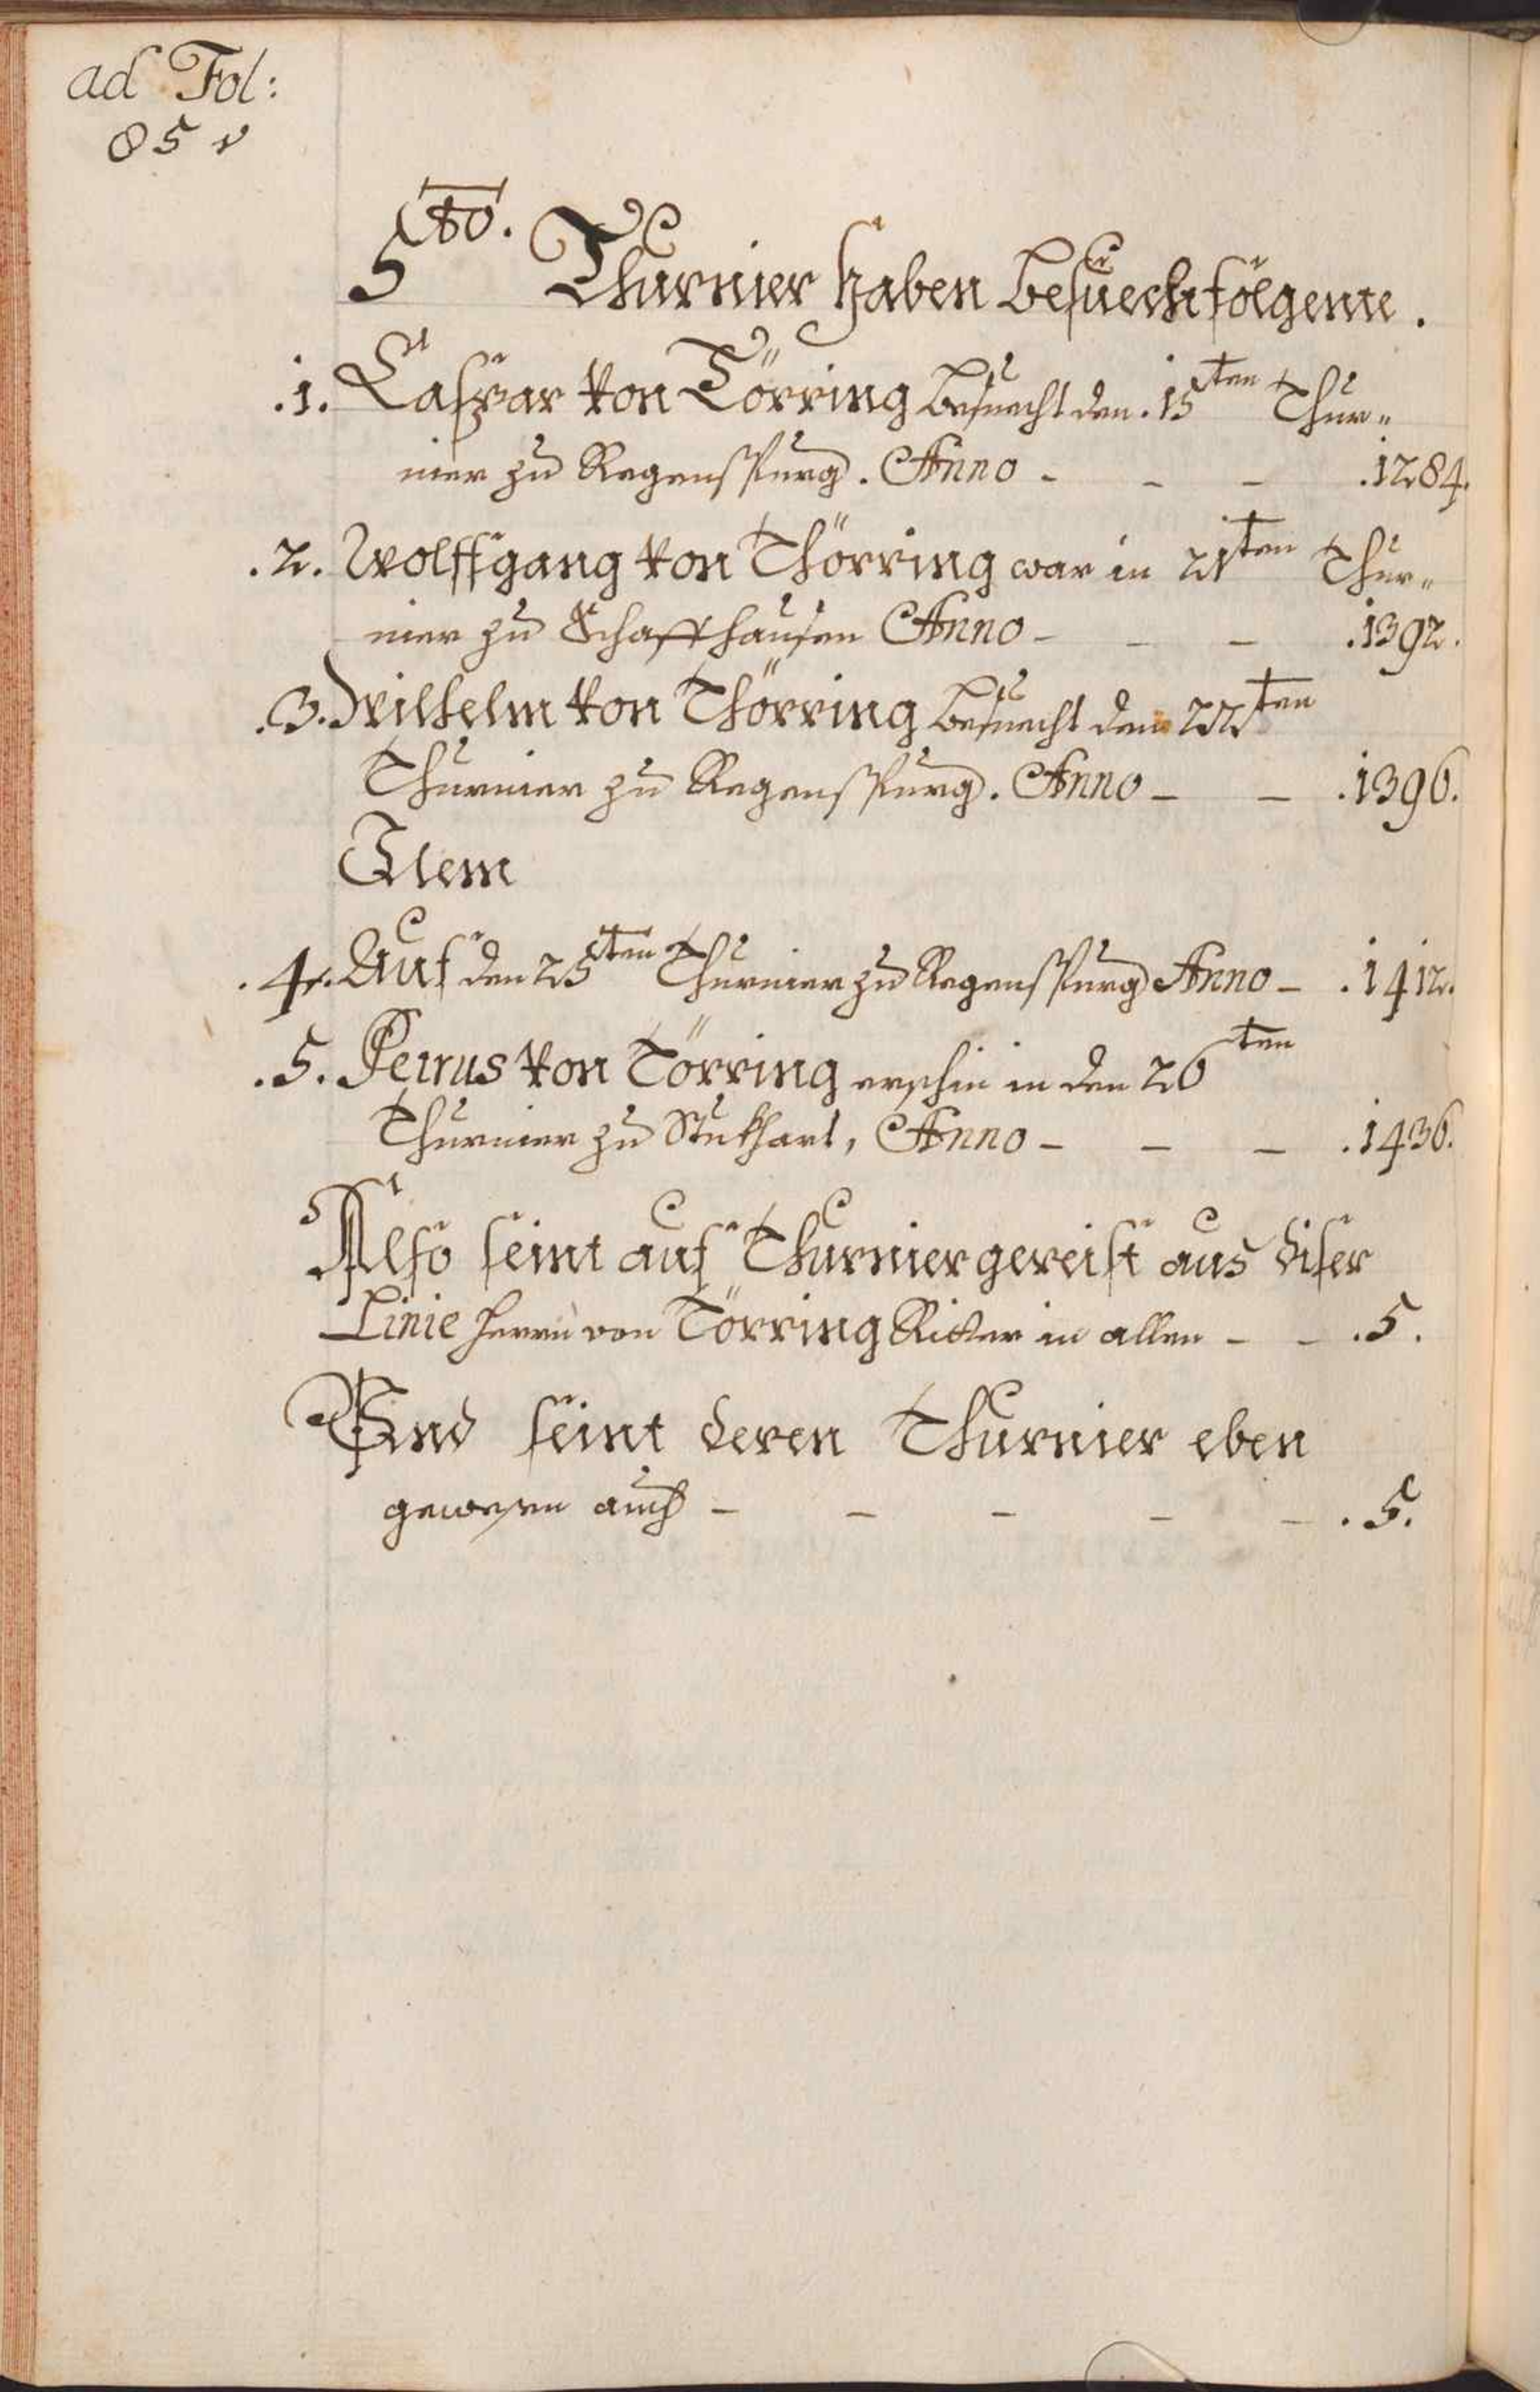 ad Fol:
85 v
5to. Thurnier haben besuecht folgente.
.1. Caspar von Törring besuecht den .15ten Thur„
nier zu Regenspurg. Anno - - - .1284.
.2. Wolffgang von Thörring war in 21ten Thur„
nier zu Schaffhausen Anno - - - .1392.
.3. Wilhelm von Thörring besuecht den 22ten
Thurnier zu Regenspurg. Anno - - .1396.
Item
.4. Auf den 25ten Thurnier zu Regenspurg Anno - .1412.
.5. Petrus von Törring erschin in den 26ten
Thurnier zu Stukhart, Anno - - - .1436.
Also seint auf Thurnier gereist aus diser
Linie herrn von Törring Ritter in allen - - .5.
Vnd seint deren Thurnier eben
gewesen auch - - - - - .5.